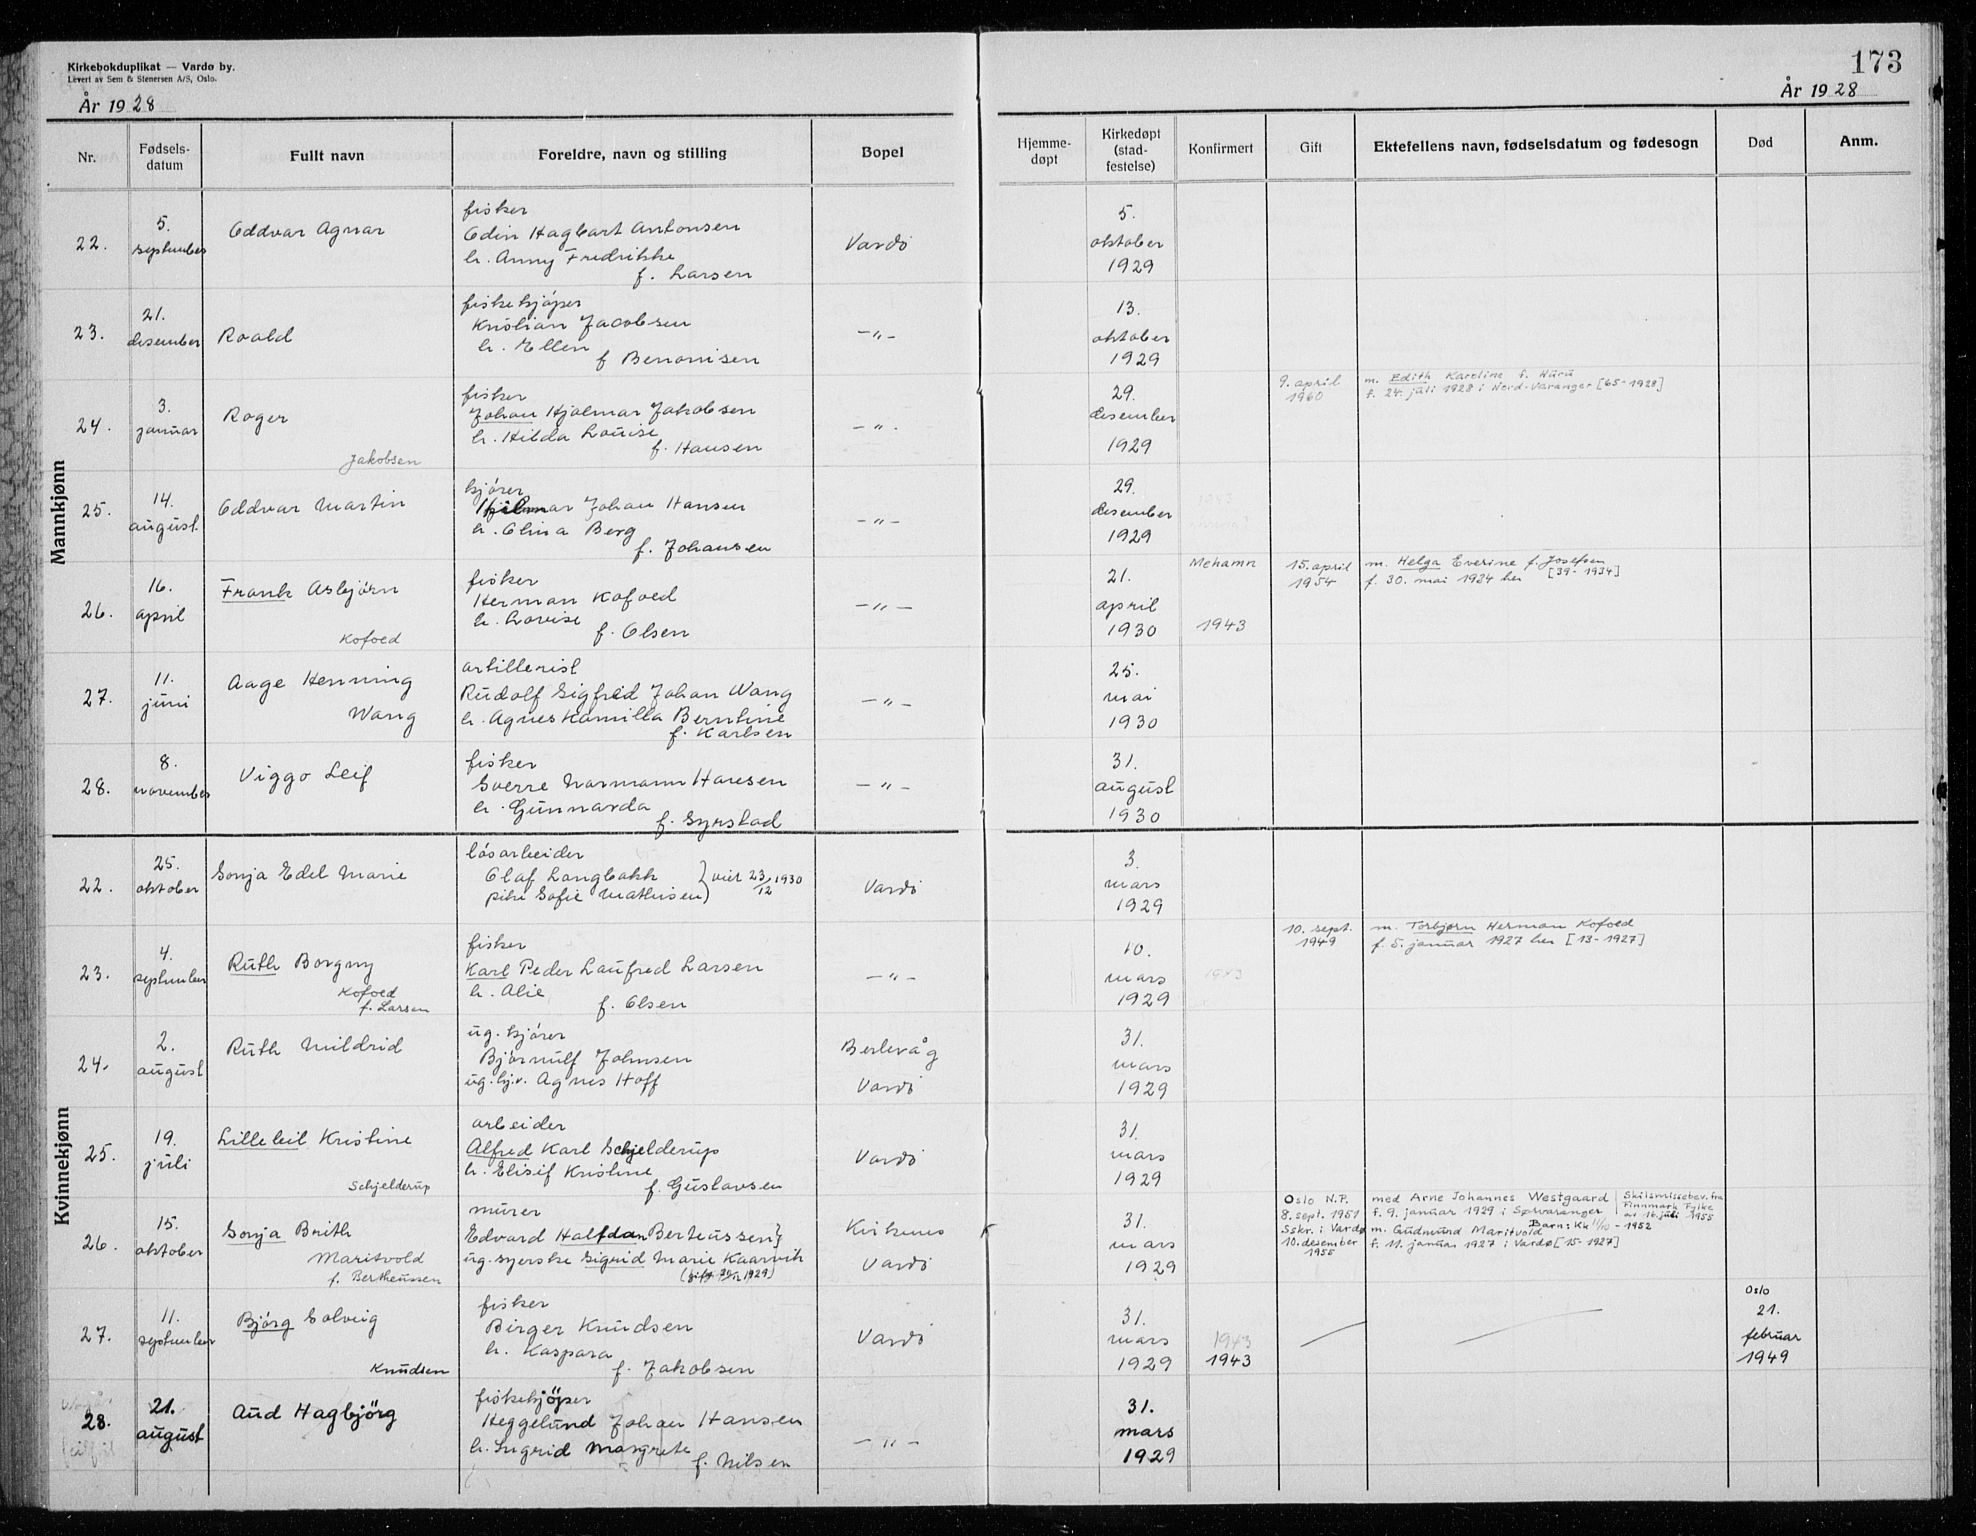 Kirkebokduplikat — Vardø by.
Levert av Sem & Stenersen A/S, Oslo.
År 1928
173
År 1928
Nr.
Fødsels-
datum
Fullt navn
Foreldre, navn og stilling
Bopel
Hjemme-
døpt
Kirkedøpt
(stad-
festelse)
Konfirmert
Gift
Ektefellens navn, fødselsdatum og fødesogn
Død
Anm.
Mannkjønn
22.
5.
september
Oddvar Agnar
fisker
Odin Hagbart Antonsen
h. Anny Fredrikke
f. Larsen
Vardö
5.
oktober
1929
23.
21.
desember
Roald
fiskekjöper
Kristian Jacobsen
h. Ellen
f Benonisen
—"—
13.
oktober
1929
24.
3.
januar
Roger
Jakobsen
fisker
Johan Hjalmar Jakobsen
h. Hilda Louise
f. Hansen
—"—
29.
desember
1929
9. april
1960
m. Edith Karoline f. Huru
f. 24. juli 1928 i Nord-Varanger [65-1928]
25.
14.
august.
Oddvar Martin
kjörer
Hjalmar Johan Hansen
h. Olina Berg
f. Johansen
—"—
29.
desember
1929
1943
26.
16.
april
Frank Asbjørn
Kofoed
fisker
Herman Kofoed
h. Lovise
f. Olsen
—"—
21.
april
1930
Mehamn
1943
15. april
1954
m. Helga Everine f. Josefsen
f. 30. mai 1934 her [39-1934]
27.
11.
juni
Aage Henning
Wang
artillerist
Rudolf Sigfred Johan Wang
h. Agnes Kamilla Berntine
f. Karlsen
—"—
25.
mai
1930
28.
8.
november
Viggo Leif
fisker
Sverre Normann Hansen
h. Gunnarda
f. Syrstad
—"—
31.
august
1930
Kvinnekjønn
22.
25.
oktober
Sonja Edel Marie
lösarbeider
Olaf Langbakk
pike Sofie Mathisen
} viet 23/12 1930
Vardö
3.
mars
1929
23.
4.
september
Ruth Borgny
Kofoed
f. Larsen
fisker
Karl Peder Laufred Larsen
h. Alie
f. Olsen
—"—
10.
mars
1929
1943
10. sept.
1949
m. Torbjørn Herman Kofoed
f. 5. januar 1927 her [13-1927]
24.
2.
august
Ruth Mildrid
ug. kjörer
Björnulf Johnsen
ug. hj.v. Agnes Hoff
Berlevåg
Vardö
31.
mars
1929
25.
19.
juli
Lilleleil Kristine
Schjelderup
arbeider
Alfred Karl Schjelderup
h. Elisif Kristine
f. Gustavsen
Vardö
31.
mars
1929
26.
15.
oktober
Sonja Brith
Maritvold
f. Bertheussen
murer
Edvard Halfdan Berteussen}
ug. syerske Sigrid Marie Kaarvik
Kirkenes
Vardö
31.
mars
1929
Oslo N.P.
8. sept. 1951
Sskr. i Vardø
10. desember
1955
med Arne Johannes Westgaard
f. 9. januar 1929 i Sørvaranger
Barn: Kk 11/10 - 1952
m. Gudmund Maritvold
f. 11. januar 1927 i Vardø [15-1927]
Skilsmissebev. fra
Finnmark Fylke
av 16. juli 1955
27.
11.
september
Bjørg Solveig
Knudsen
fisker
Birger Knudsen
h. Kaspara
f. Jakobsen
Vardö
31.
mars
1929
1943
1943
Oslo
21.
februar
1949
28.
21.
august
Aud Hagbjörg
fiskekjöper
Heggelund Johan Hansen
h. Ingrid Margrete
f. Nilsen
—"—
31.
mars
1929